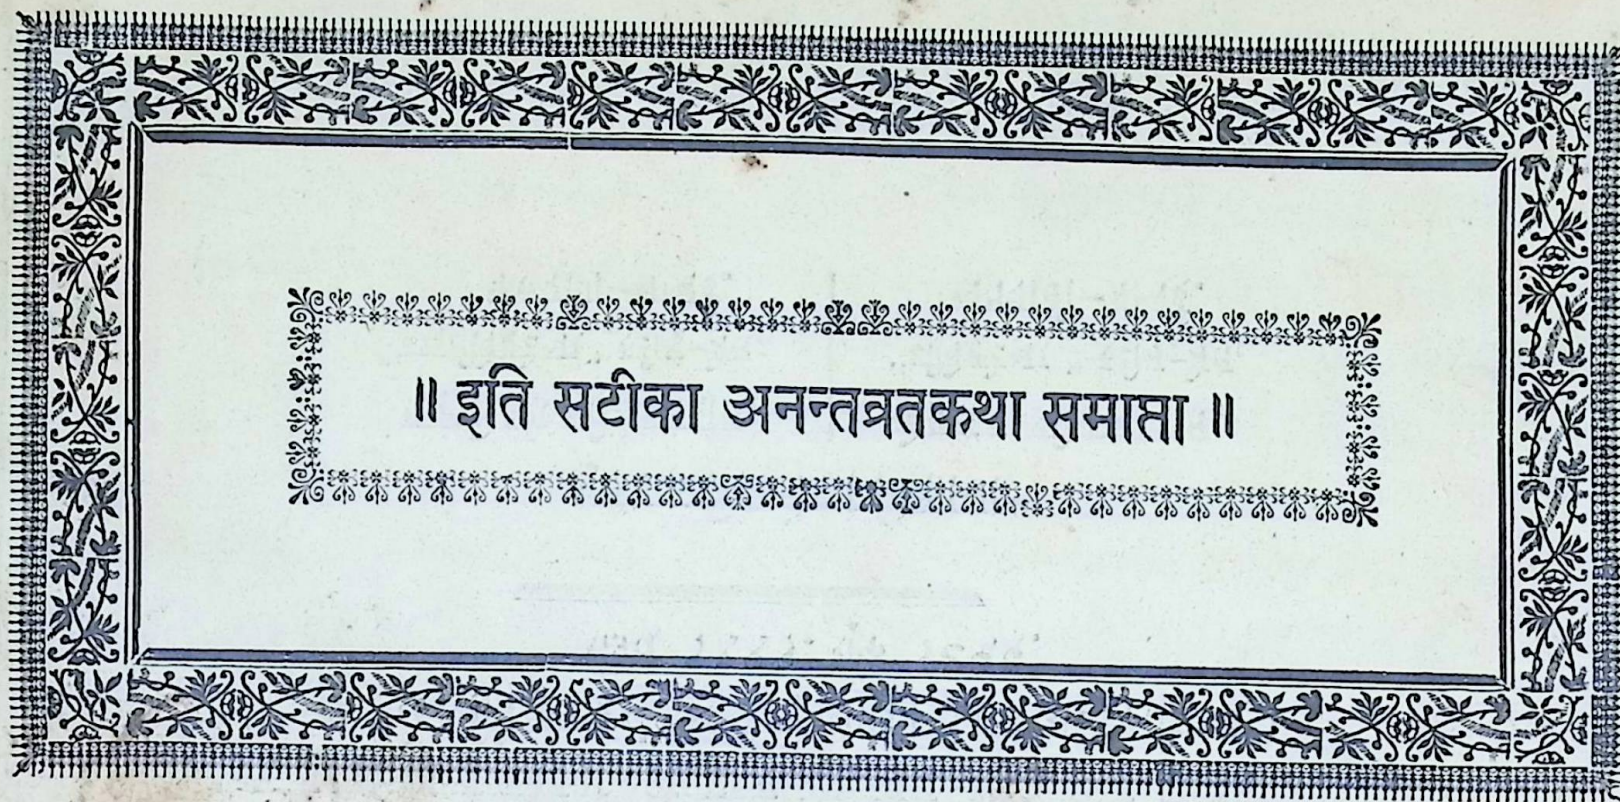 ॥ इति सटीका अनन्तव्रतकथा समाप्ता ॥